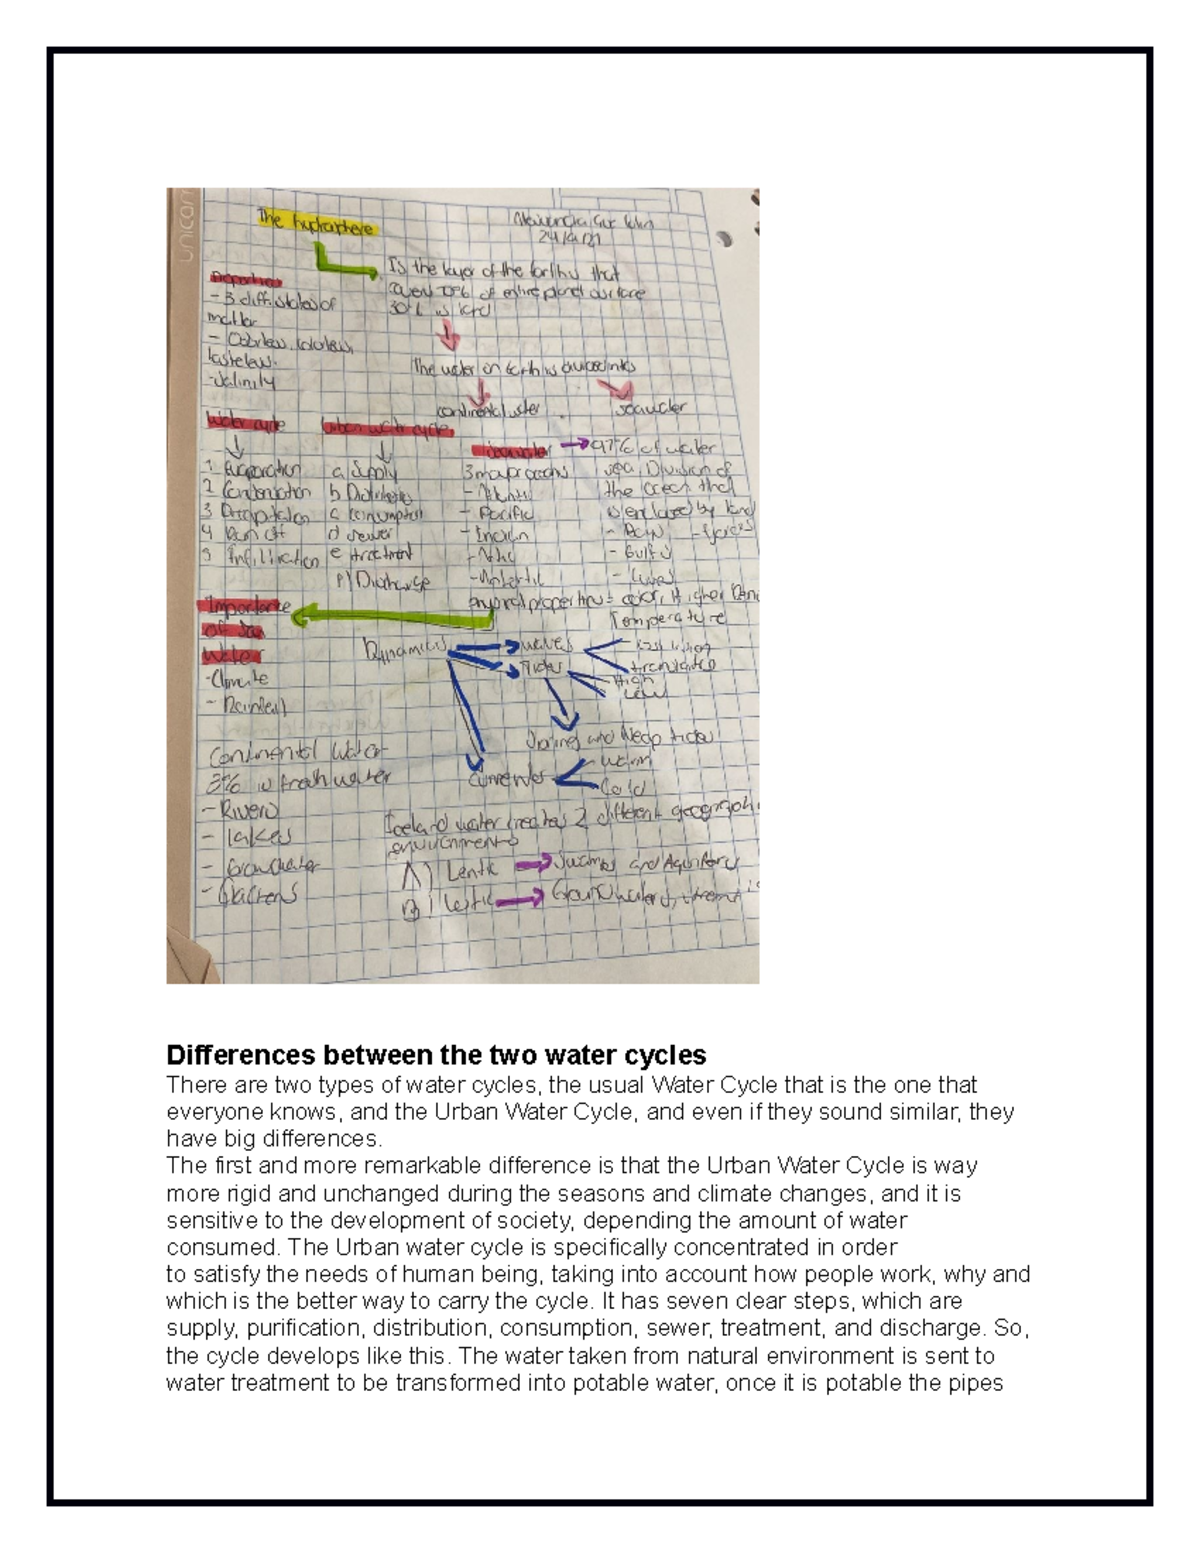 unicorn
The hydrosphere
24/
Is the layer of the Earth that
cover 70% of entire planet surface
30% is
- 3 diff. states of
matter
-
tasteless.
- Salinity
The water on Earth is
continental water
seawater
Water cycle
Urban water cycle
→ 97% of water
1 Evaporation
a Supply
3 major oceans
sea: Division of
2 Condensation
b Distribution
the ocean that
3 Precipitation
c consumption
- Pacific
is enclosed by land
4 Run off
d sewer
- Indian
5 Infiltration
e treatment
- Gulfs
f) Discharge
physical properties = color,
Temperature
Importance
of Sea
Water
Dynamics
waves
Tides
High
Low
- Climate
- Rainfall
Spring and Neap tides
Continental Water
3% is freshwater
currents
- warm
- Cold
- Rivers
- lakes
- Groundwater
- Glaciers
water creates 2 different
environments
A) Lentic
Swamps and
B)
Groundwater
Differences between the two water cycles
There are two types of water cycles, the usual Water Cycle that is the one that
everyone knows, and the Urban Water Cycle, and even if they sound similar, they
have big differences.
The first and more remarkable difference is that the Urban Water Cycle is way
more rigid and unchanged during the seasons and climate changes, and it is
sensitive to the development of society, depending the amount of water
consumed. The Urban water cycle is specifically concentrated in order
to satisfy the needs of human being, taking into account how people work, why and
which is the better way to carry the cycle. It has seven clear steps, which are
supply, purification, distribution, consumption, sewer, treatment, and discharge. So,
the cycle develops like this. The water taken from natural environment is sent to
water treatment to be transformed into potable water, once it is potable the pipes